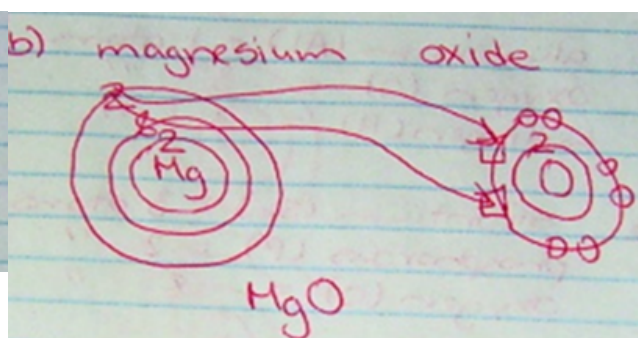 b) magnesium oxide
2
8
2
Mg
2
O
MgO